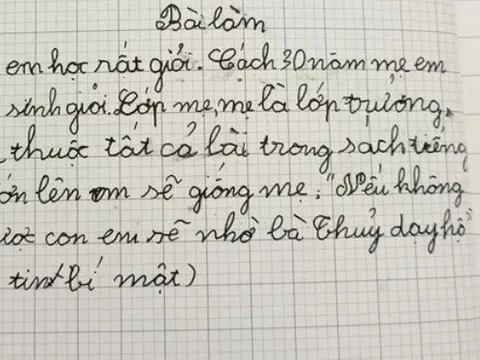 Bài làm
em học rất giỏi. Cách 30 năm mẹ em
sinh giỏi. Lớp mẹ, mẹ là lớp trưởng,
thuộc tất cả bài trong sách tiếng
ớn lên em sẽ giống mẹ. "Nếu không
ược con em sẽ nhờ bà Thuỷ dạy hộ"
tin bí mật)